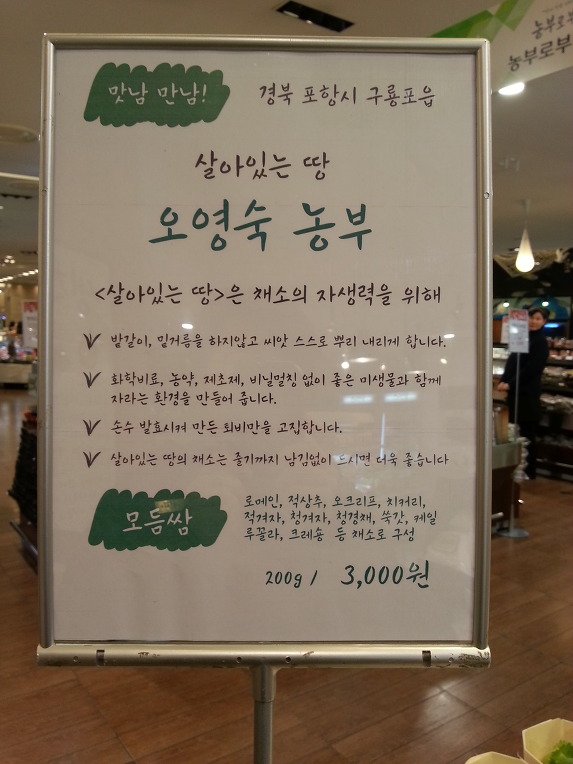 농부로부
농부로부
맛남 만남!
경북 포항시 구룡포읍
살아있는 땅
오영숙 농부
<살아있는 땅>은 채소의 자생력을 위해
밭갈이, 밑거름을 하지않고 씨앗 스스로 뿌리 내리게 합니다.
화학비료, 농약, 제초제, 비닐멀칭 없이 좋은 미생물과 함께
자라는 환경을 만들어 줍니다.
손수 발효시켜 만든 퇴비만을 고집합니다.
살아있는 땅의 채소는 줄기까지 남김없이 드시면 더욱 좋습니다
모듬쌈
로메인, 적상추, 오크리프, 치커리,
적겨자, 청겨자, 청경채, 쑥갓, 케일
루꼴라, 크레송 등 채소로 구성
200g / 3,000원